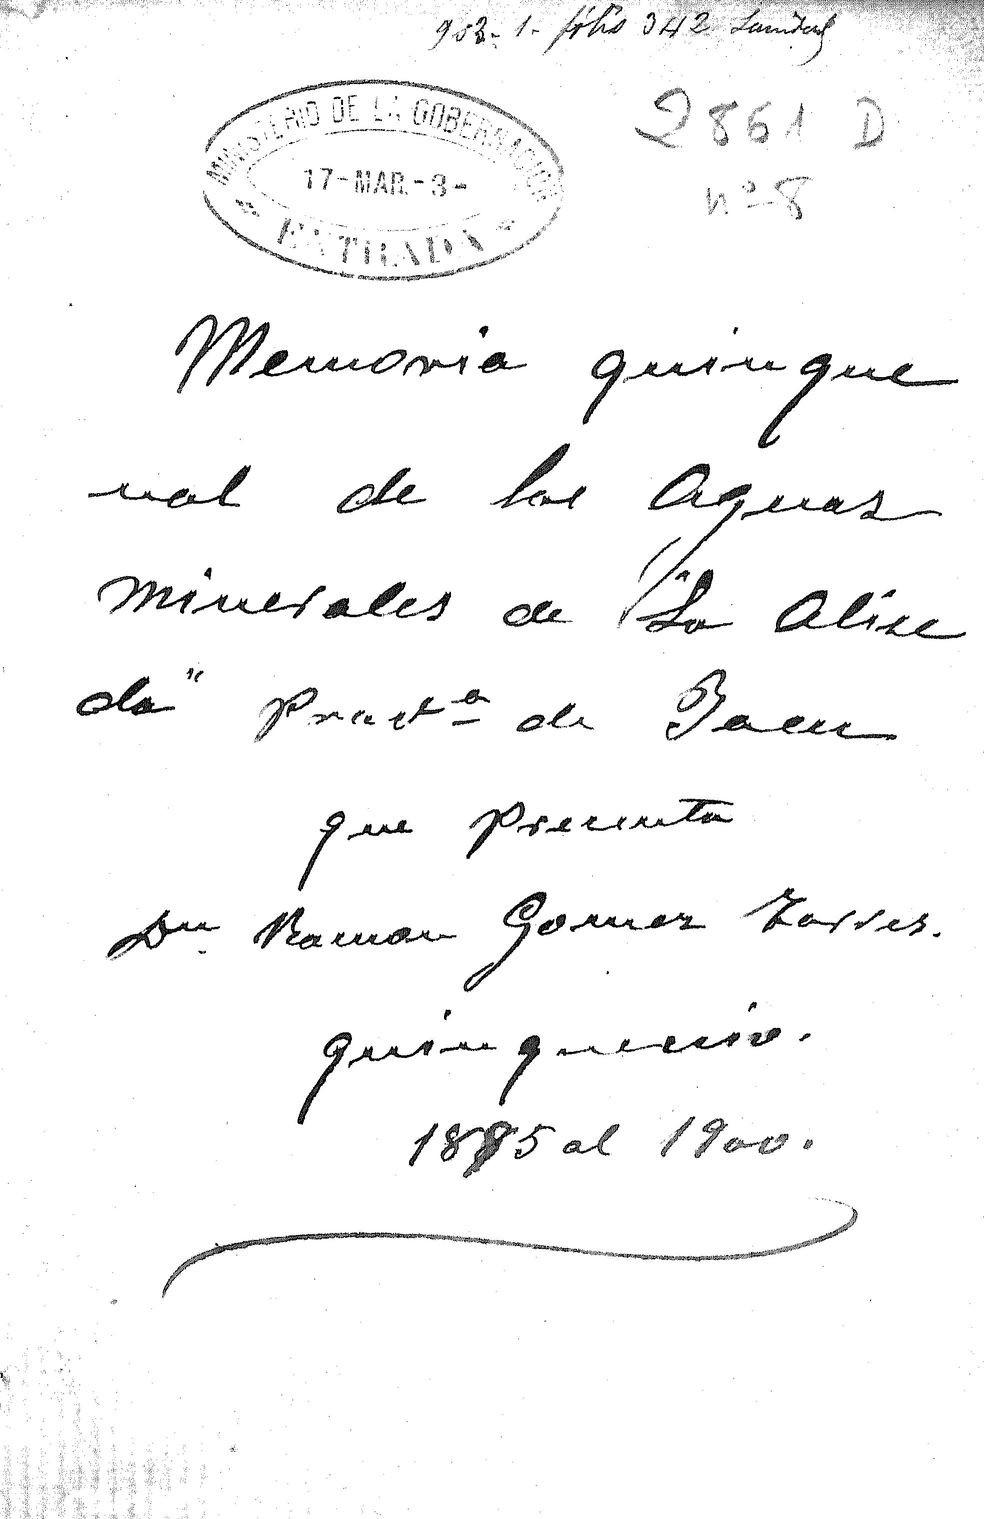 903-1- fólio 342 Sanidad
MINISTERIO DE LA GOBERNACION
17-MAR.-3-
ENTRADA
2861 D
nº 8
Memoria quinque
nal de las Aguas
minerales de "La Alise
da" de Jaen
que presenta
Dn. Ramon Gomez Torres.
quinquenio.
1895 al 1900.